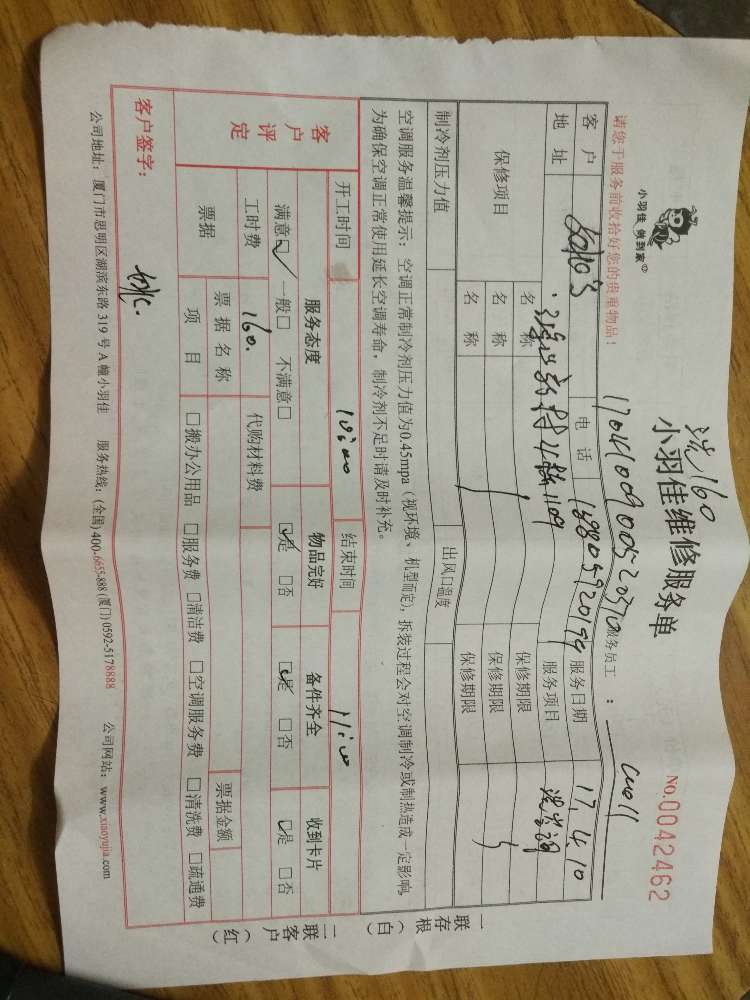 洗160
小羽佳 做到家
小羽佳维修服务单
NO.0042462
请您于服务前收拾好您的贵重物品！
服务员工：
客户 电话 服务日期 17.4.10
地址 服务项目 洗空调
保修项目 名称 保修期限
名称 保修期限
名称 保修期限
制冷剂压力值 出风口温度
空调服务温馨提示：空调正常制冷剂压力值为0.45mpa（视环境、机型而定），拆装过程会对空调制冷或制热造成一定影响，
为确保空调正常使用延长空调寿命，制冷剂不足时请及时补充。
开工时间 10:00 结束时间
客户评定
服务态度 物品完好 备件齐全 收到卡片
满意☑ 一般□ 不满意□ ☑是 □否 ☑是 □否 ☑是 □否
工时费 160. 代购材料费
票据 票据名称 票据金额
项目 □搬办公用品 □服务费 □清洁费 □空调服务费 □清洗费 □疏通费
客户签字：
公司地址：厦门市思明区湖滨东路319号A幢小羽佳 服务热线：(全国)400-6655-888 (厦门)0592-5178888 公司网站：www.xiaoyujia.com
一联存根（白）
二联客户（红）